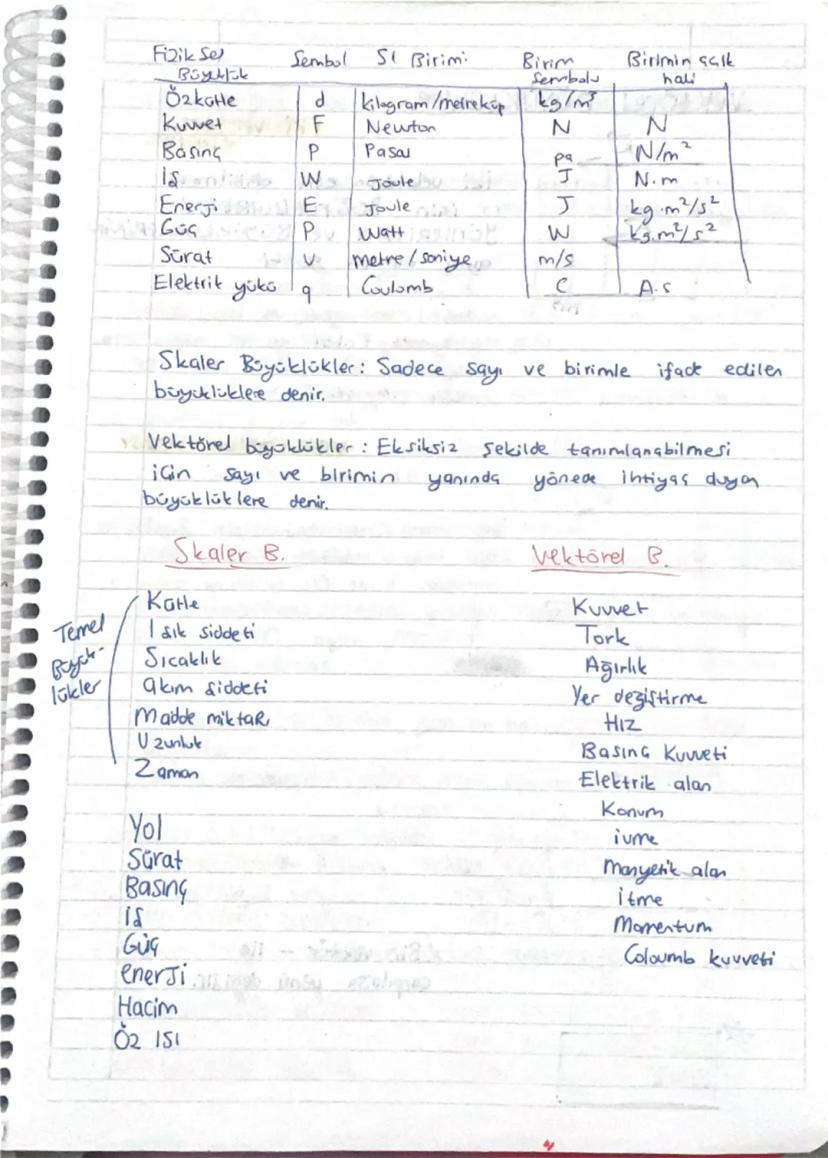 Fiziksel Büyüklük Sembol SI Birimi Birim Sembolü Birimin açık hali
Özkütle d kilogram/metreküp kg/m³
Kuvvet F Newton N N
Basınç P Pasal pa N/m²
İş W Joule J N.m
Enerji E Joule J kg.m²/s²
Güç P Watt W kg.m²/s²
Sürat v metre/saniye m/s
Elektrik yükü q Coulomb C A.s
Skaler Büyüklükler: Sadece sayı ve birimle ifade edilen
büyüklüklere denir.
Vektörel büyüklükler: Eksiksiz şekilde tanımlanabilmesi
için sayı ve birimin yanında yönede ihtiyaç duyan
büyüklüklere denir.
Skaler B. Vektörel B.
Temel Büyük-lükler
Kütle
Işık şiddeti
Sıcaklık
akım şiddeti
Madde miktarı
Uzunluk
Zaman
Yol
Sürat
Basınç
iş
Güç
enerji
Hacim
Öz ısı
Kuvvet
Tork
Ağırlık
Yer değiştirme
Hız
Basınç Kuvveti
Elektrik alan
Konum
ivme
Manyetik alan
itme
Momentum
Coloumb kuvveti